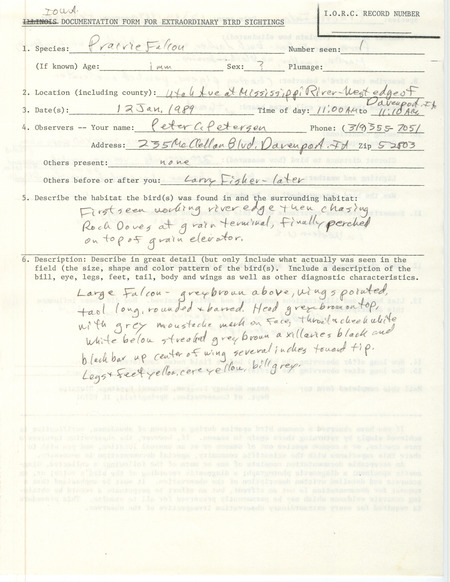 Iowa
ILLINOIS DOCUMENTATION FORM FOR EXTRAORDINARY BIRD SIGHTINGS
I.O.R.C. RECORD NUMBER
1. Species: Prairie Falcon Number seen: 1
(If known) Age: imm Sex: ? Plumage:
2. Location (including county): Utah Ave at Mississippi River - West edge of
Davenport, IA
3. Date(s): 12 Jan, 1989 Time of day: 11:00AM to 11:10AM
4. Observers -- Your name: Peter C. Petersen Phone: (319)355-7051
Address: 235 McClellan Blvd. Davenport IA Zip 52803
Others present: none
Others before or after you: Larry Fisher - later
5. Describe the habitat the bird(s) was found in and the surrounding habitat:
First seen working river edge then chasing
Rock Doves at grain terminal, finally perched
on top of grain elevator.
6. Description: Describe in great detail (but only include what actually was seen in the
field (the size, shape and color pattern of the bird(s). Include a description of the
bill, eye, legs, feet, tail, body and wings as well as other diagnostic characteristics.
Large Falcon - grey brown above, wings pointed,
tail long, rounded & barred. Head grey brown on top,
with grey moustache mark on face, throat & cheek white
White below streaked grey brown axillaries black and
black bar up center of wing several inches toward tip.
Legs & feet yellow, cere yellow, bill grey.